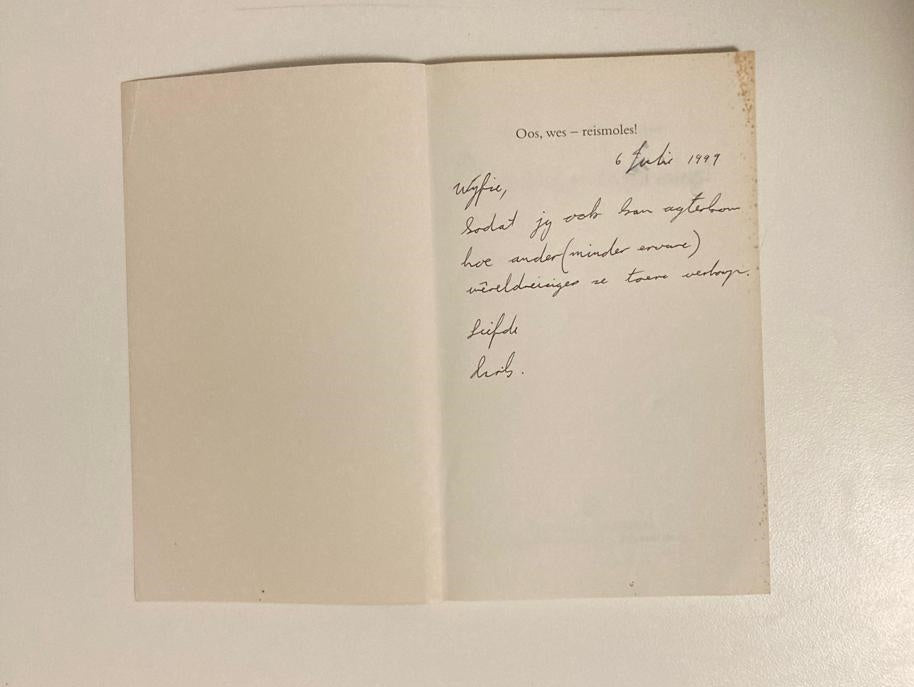 Oos, wes – reismoles!
6 Julie 1999
Wyfie,
Sodat jy ook kan agterkom
hoe ander (minder ervare)
wêreldreisiges se toere verloop.
Liefde